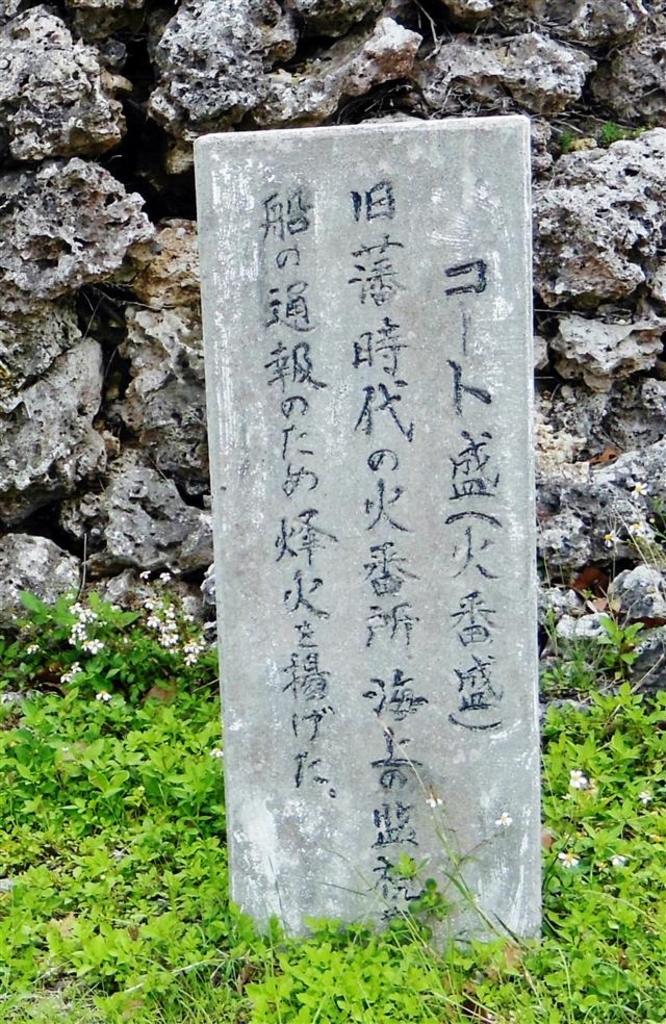 コート盛(火番盛)
旧藩時代の火番所海上の監視
船の通報のため烽火を揚げた。